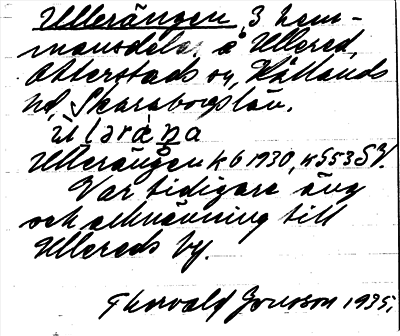 Ullerängen, 3 hem-
mansdelar å Ullered,
Otterstads sn, Kållands
hd, Skaraborgs län.
Ullerängen kb 1930,
Var tidigare äng
och allmänning till
Ullereds by.
Thorvald Jonsson 1935.